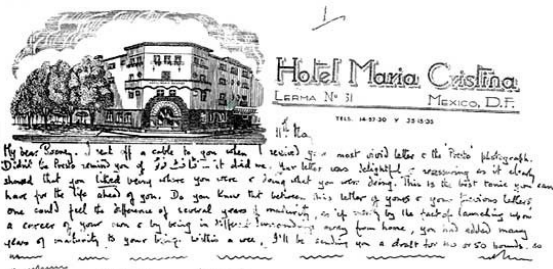 Hotel Maria Cristina
LERMA Nº 31 MEXICO, D.F.
TELS. 14-57-30 Y 35-15-35
11th May
My dear Rooney. I sent off a cable to you when I received your most vivid letter & the 'Presto' photograph.
Didn't the Presto remind you of — it did me. Your letter was delightful & reassuring as it clearly
showed that you liked being where you were & doing what you were doing. This is the best tonic you can
have for the life ahead of you. Do you know that between this letter of yours & your previous letters,
one could feel the difference of several years of maturity, as if by the fact of launching upon
a career of your own & by being in different surroundings away from home, you had added many
years of maturity to your being. Within a week, I'll be sending you a draft for 40 or 50 pounds. as